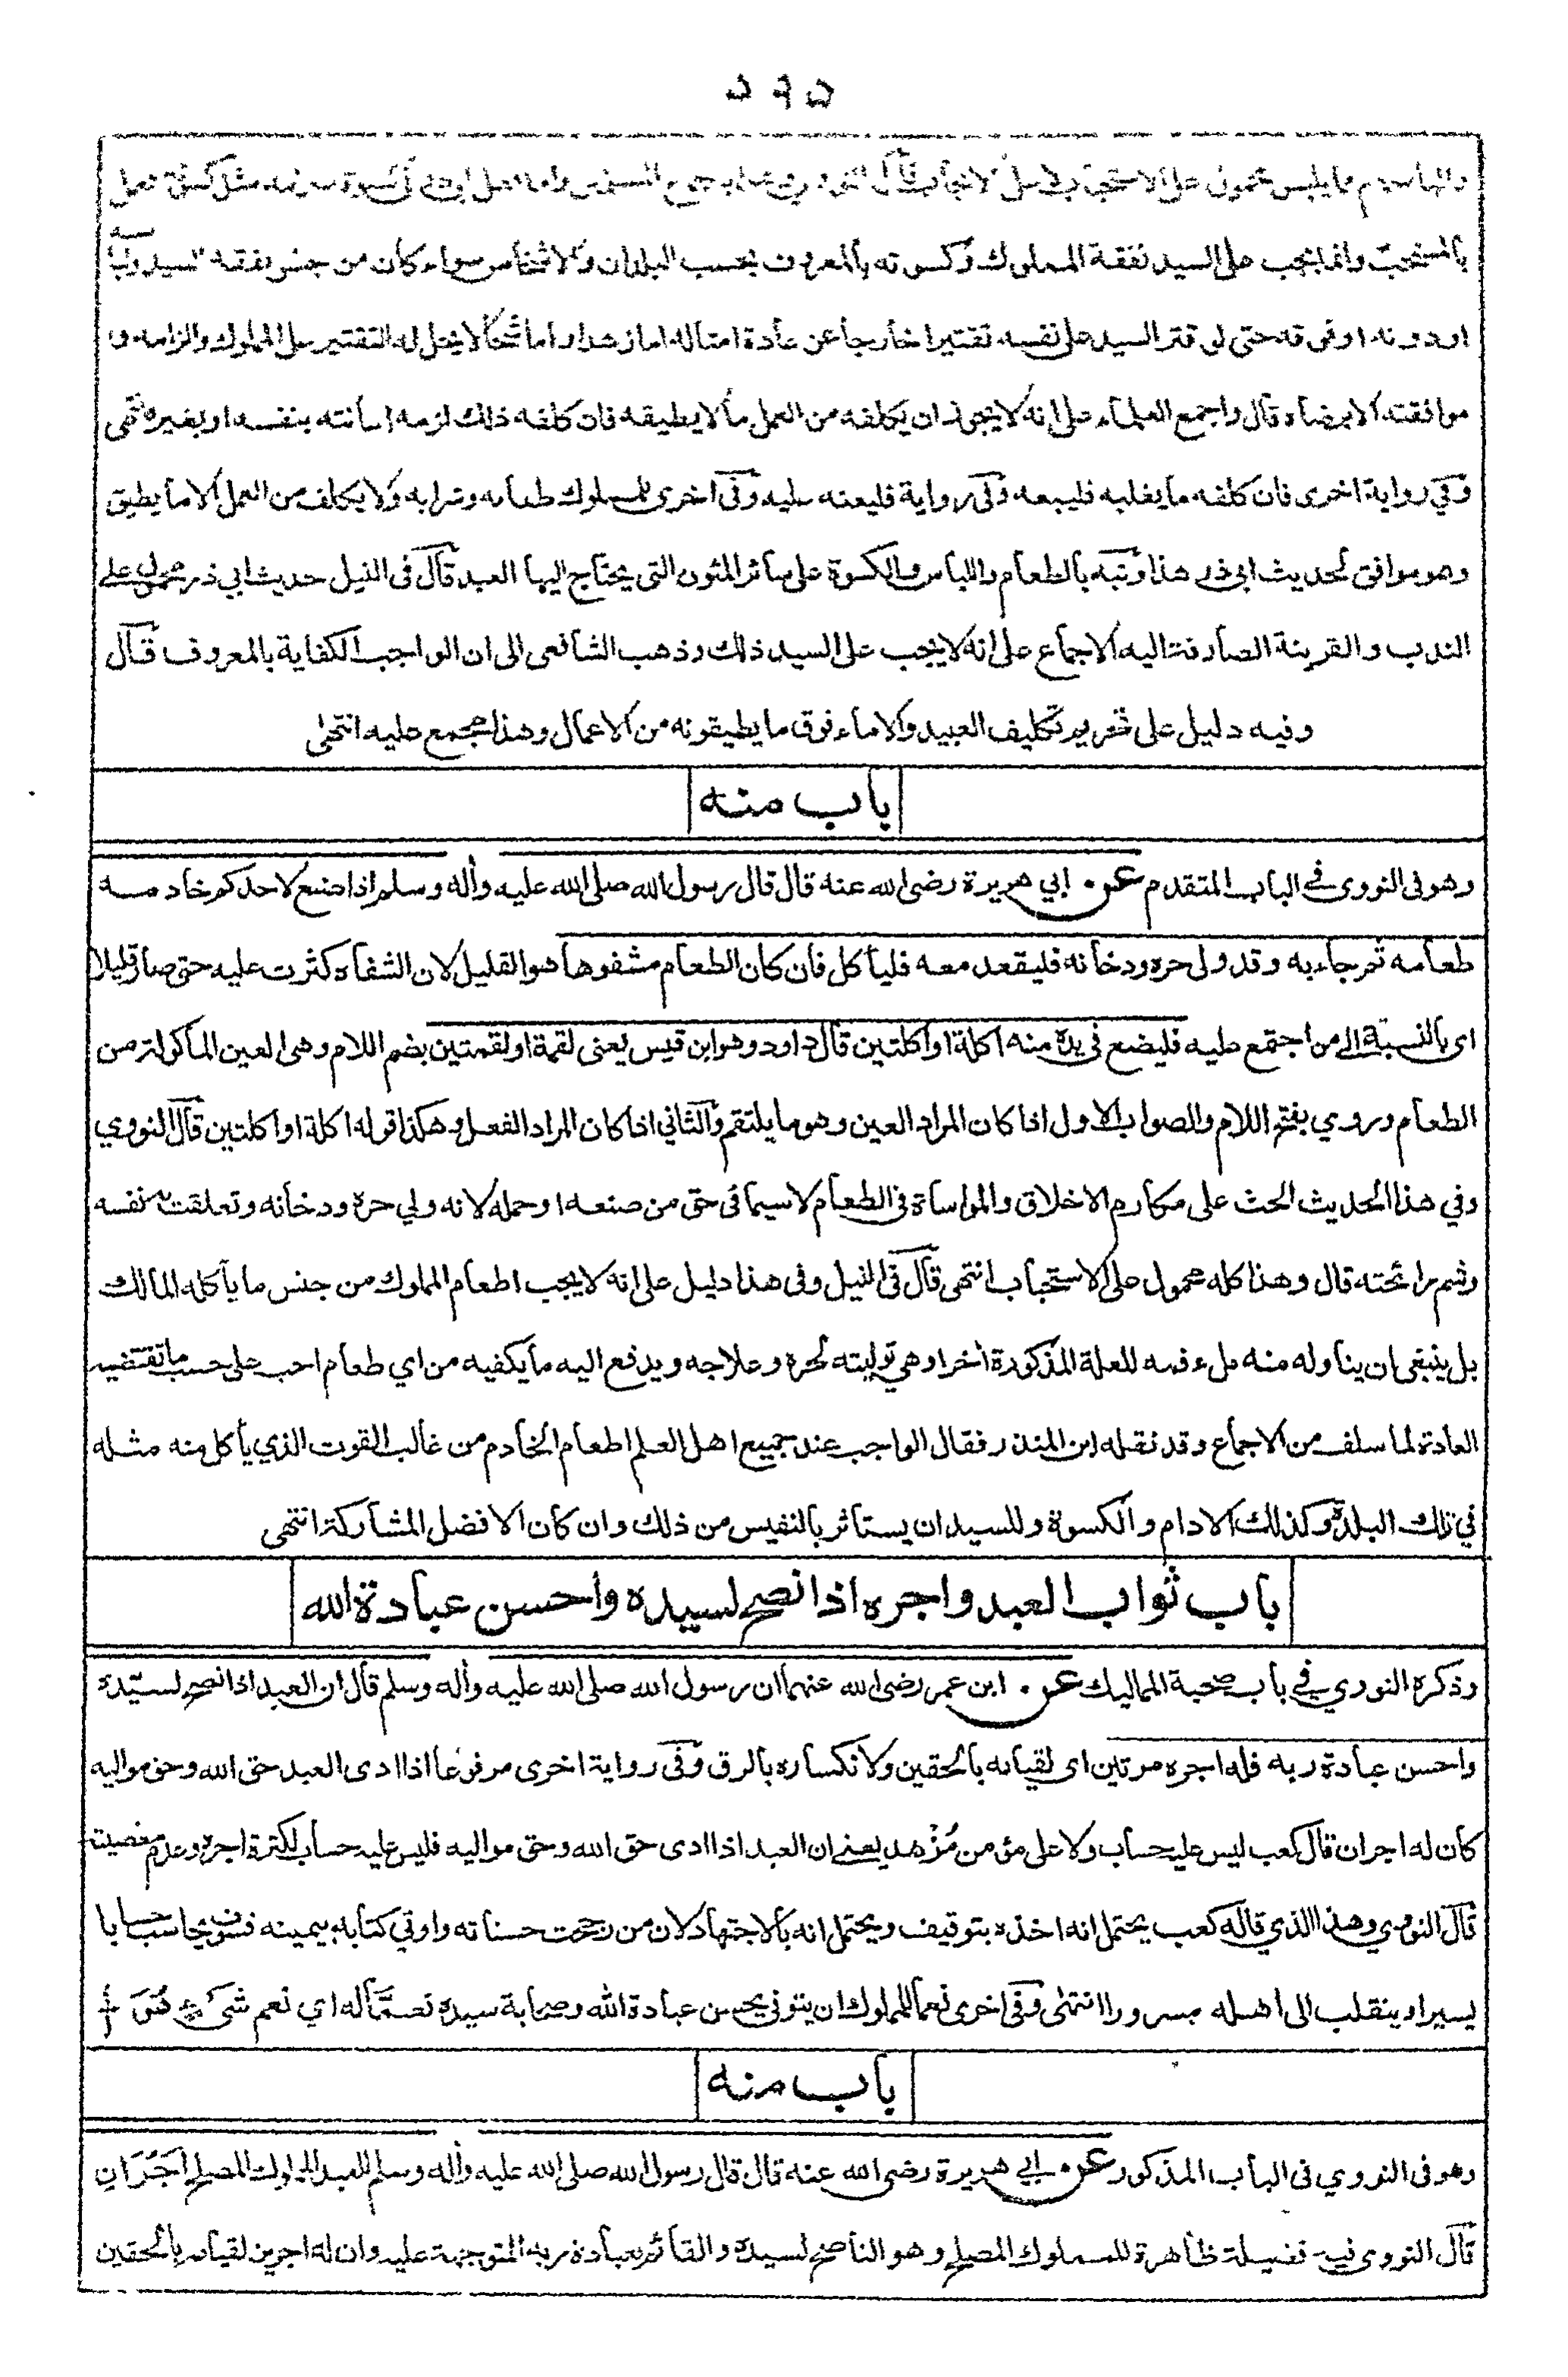 ٥٩٥
مما يلبس محمول على الاستحباب لا على الايجاب قال النووى
بالمستحب وانما يجب على السيد نفقة المملوك وكسوته بالمعروف بحسب البلدان والاشخاص سواء كان من جنس نفقة السيد ولباسه
او دونه او فوقه حتى لو قتر السيد على نفسه تقتيرا خارجا عن عادة امثاله اما زهدا واما شحا لا يحل له التقتير على المملوك والزامه و
موافقته الا برضاه قال واجمع العلماء على انه لا يجوز ان يكلفه من العمل ما لا يطيقه فان كلفه ذلك لزمه اعانته بنفسه او بغيره انتهى
وفي رواية اخرى فان كلفه ما يغلبه فليبعه وفى رواية فليعنه عليه وفى اخرى للمملوك طعامه وشرابه ولا يكلف من العمل الا ما يطيق
وهو موافق لحديث ابى ذر هذا ونبه بالطعام واللباس والكسوة على سائر المئون التى يحتاج اليها العبد قال فى النيل حديث ابي ذر محمول على
الندب والقرينة الصارفة اليه الاجماع على انه لا يجب على السيد ذلك وذهب الشافعى الى ان الواجب الكفاية بالمعروف قال
وفيه دليل على تحريم تكليف العبيد والاماء فوق ما يطيقونه من الاعمال وهذا مجمع عليه انتهى
باب منه
وهو فى النووى في الباب المتقدم عن ابي هريرة رضى الله عنه قال قال رسول الله صلى الله عليه وآله وسلم اذا صنع لاحدكم خادمه
طعامه ثم جاءه به وقد ولى حره ودخانه فليقعده معه فليأكل فان كان الطعام مشفوها هو القليل لان الشفاه كثرت عليه حتى صار قليلا
اى بالنسبة الى من اجتمع عليه فليضع فى يده منه اكلة او اكلتين قال داود وهو ابن قيس يعنى لقمة او لقمتين بضم اللام وهى العين المأكولة من
الطعام وروي بفتح اللام والصواب الاول اذا كان المراد العين وهو ما يلتقم والثاني اذا كان المراد الفعل وهكذا قوله اكلة او اكلتين قال النووي
وفي هذا الحديث الحث على مكارم الاخلاق والمواساة فى الطعام لاسيما فى حق من صنعه او حمله لانه ولي حره ودخانه وتعلقت به نفسه
وشم رائحته قال وهذا كله محمول على الاستحباب انتهى قال فى النيل وفى هذا دليل على انه لا يجب اطعام المملوك من جنس ما يأكله المالك
بل ينبغى ان يناوله منه ملء فمه للعلة المذكورة اخرا وهي توليته لحره وعلاجه ويدفع اليه ما يكفيه من اي طعام احب على حسب ما تقتضيه
العادة لما سلف من الاجماع وقد نقله ابن المنذر فقال الواجب عند جميع اهل العلم اطعام الخادم من غالب القوت الذي يأكل منه مثله
في تلك البلدة وكذلك الادام والكسوة وللسيد ان يستأثر بالنفيس من ذلك وان كان الافضل المشاركة انتهى
باب ثواب العبد واجره اذا نصح لسيده واحسن عبادة الله
وذكره النوري في باب صحبة المماليك عن ابن عمر رضى الله عنهما ان رسول الله صلى الله عليه وآله وسلم قال ان العبد اذا نصح لسيّده
واحسن عبادة ربه فله اجره مرتين اى لقيامه بالحقين ولانكساره بالرق وفى رواية اخرى مرفوعا اذا ادى العبد حق الله وحق مواليه
كان له اجران قال كعب ليس عليه حساب ولا على مؤمن مُزْهد يعنى ان العبد اذا ادى حق الله وحق مواليه فليس عليه حساب لكثرة اجره وعدم معصيته
قال النووي وهذا الذي قاله كعب يحتمل انه اخذه بتوقيف ويحتمل انه بالاجتهاد لان من رجحت حسناته واوتي كتابه بيمينه فسوف يحاسب حسابا
يسيرا وينقلب الى اهله مسرورا انتهى وفى اخرى نعما للمملوك ان يتوفى يحسن عبادة الله وصحابة سيده نعمّا له اي نعم شئ هو
باب منه
وهو فى النووي فى الباب المذكور عن ابي هريرة رضى الله عنه قال قال رسول الله صلى الله عليه وآله وسلم للعبد المملوك المصلح اجران
قال النووى فيه فضيلة ظاهرة للمملوك المصلح وهو الناصح لسيده والقائم بعبادة ربه المتوجهة عليه وان له اجرين لقيامه بالحقين